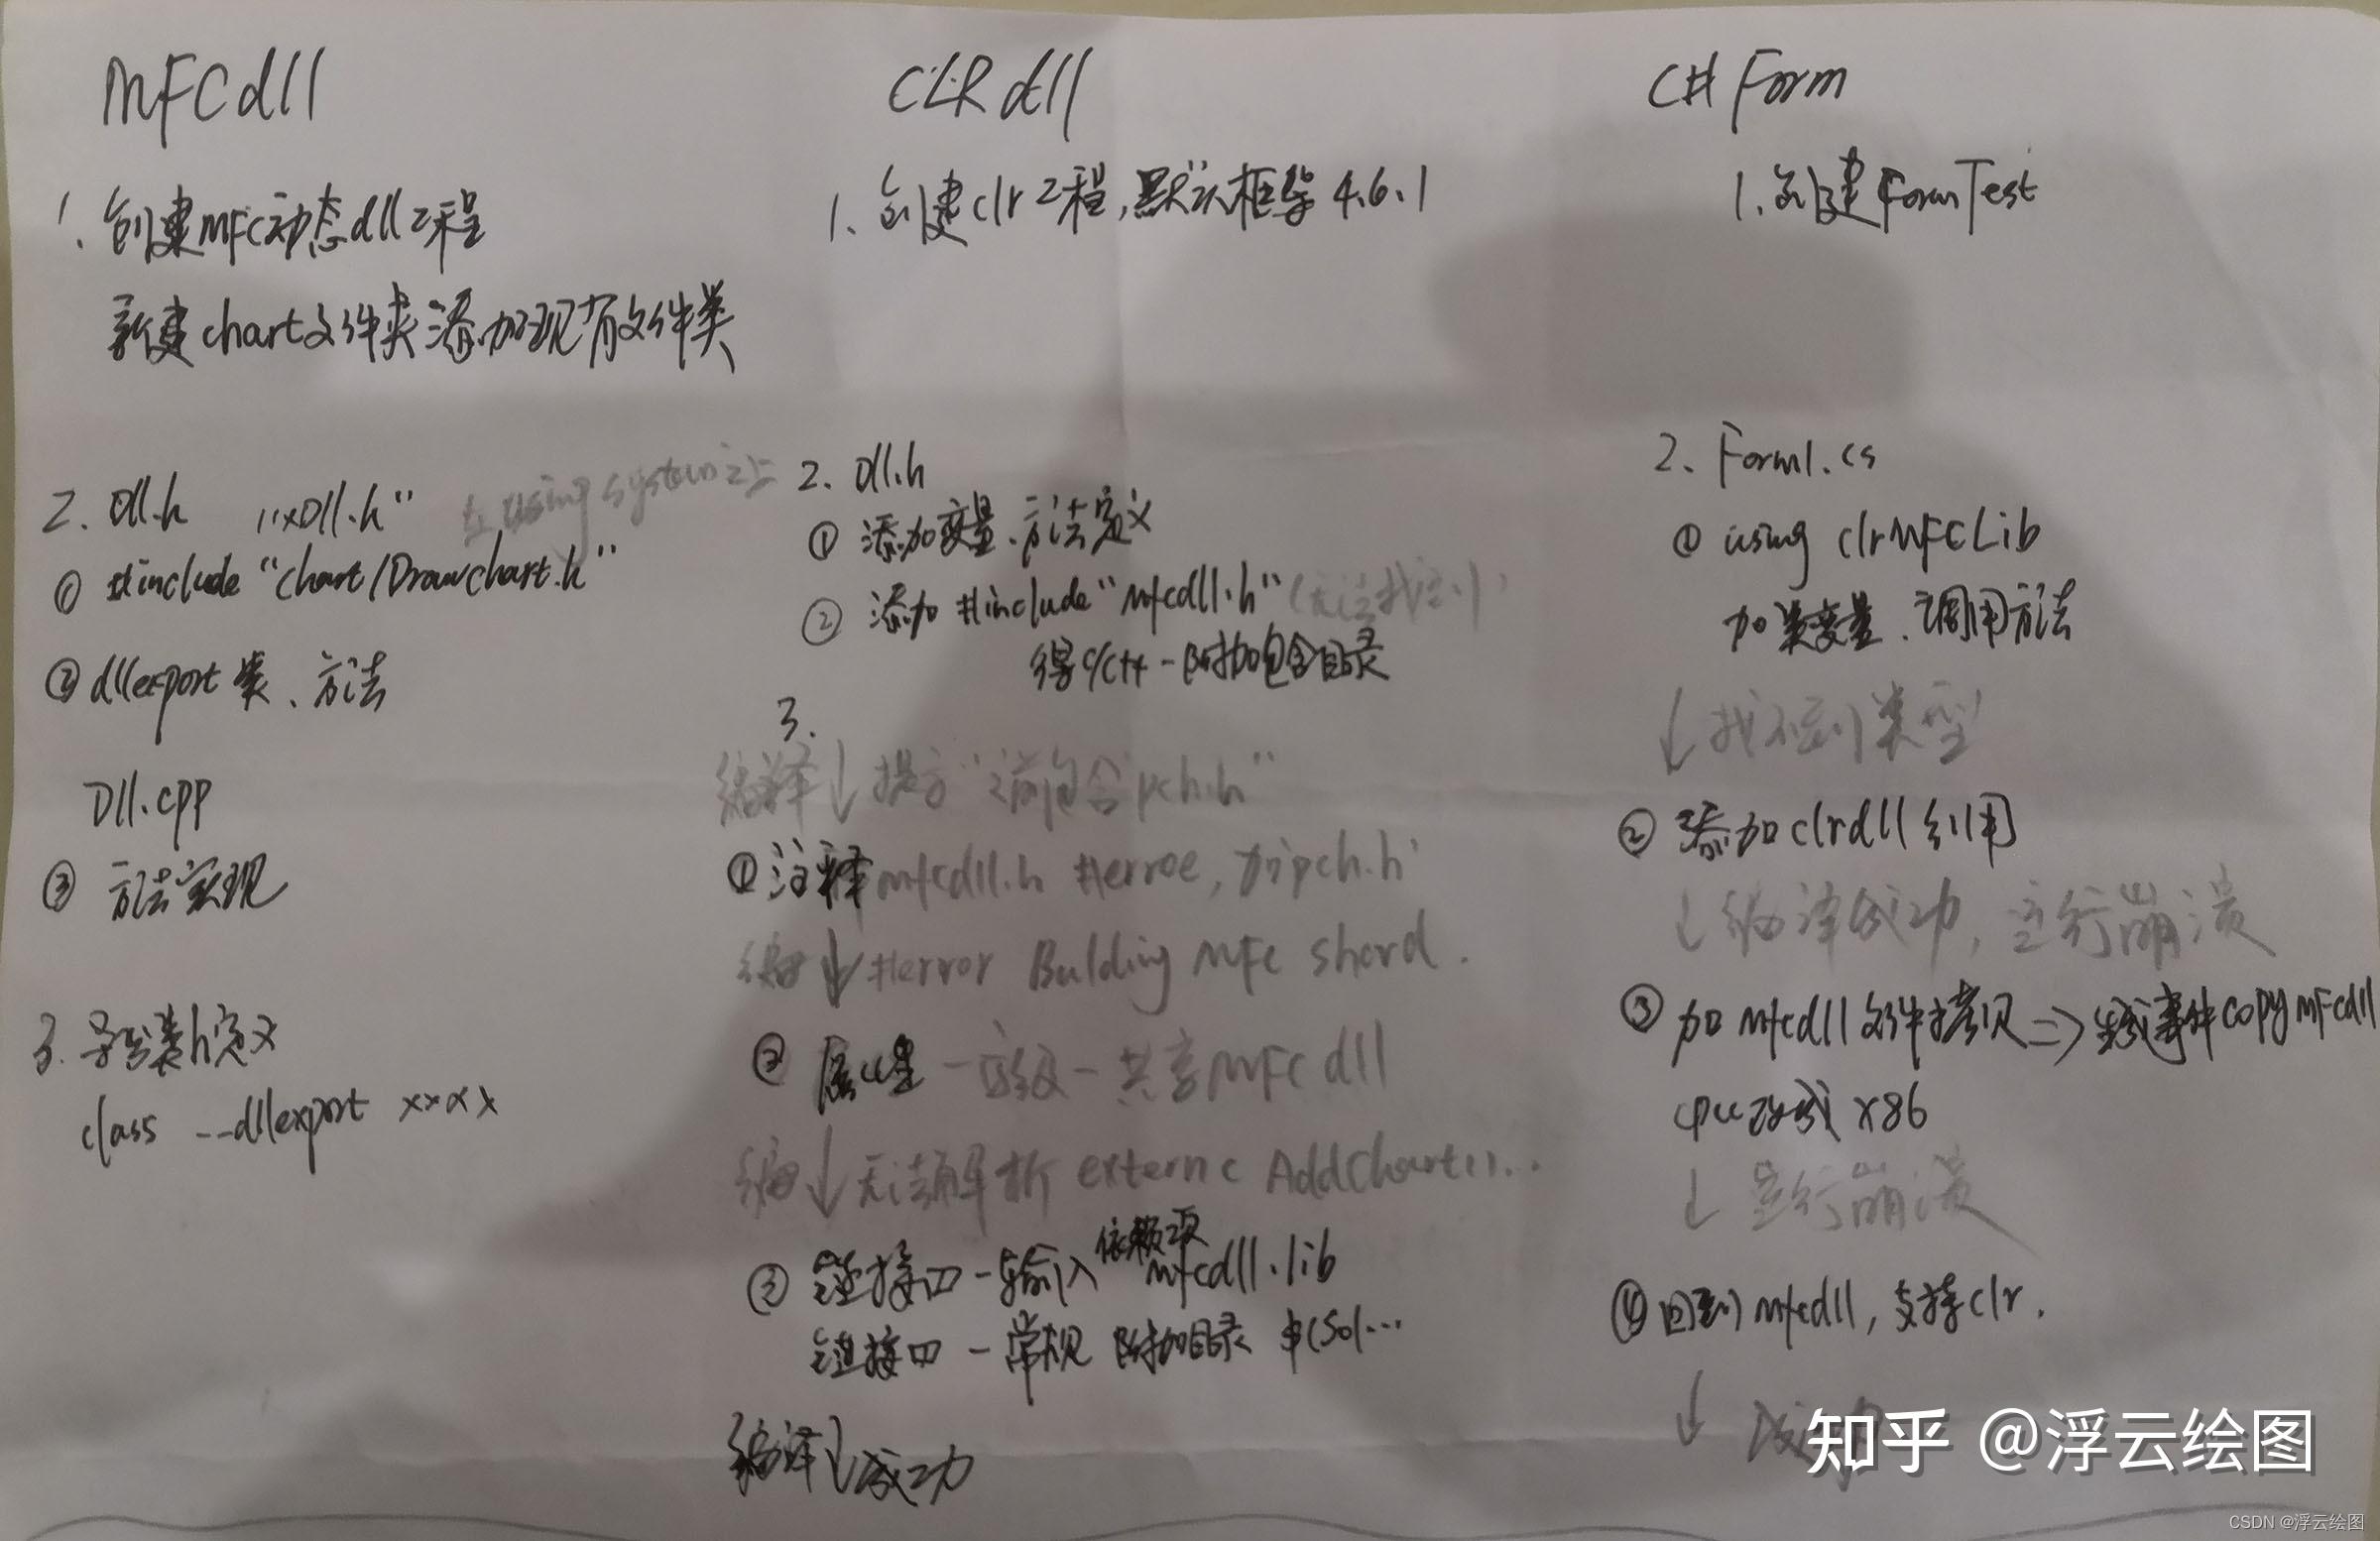 MFCdll
1. 创建MFC动态dll工程
新建chart文件夹添加现有文件类
2. Dll.h "xDll.h"
① #include "chart/Drawchart.h"
② dllexport 类、方法
Dll.cpp
③ 方法实现
3. 导出类h定义
class __dllexport xxxx
CLR dll
1. 创建clr工程,默认框架4.6.1
在using system之上
2. Dll.h
① 添加变量、方法定义
② 添加 #include "mfcdll.h" (无法找到)
得C/C++ - 附加包含目录
3.
编译↓提示"请包含pch.h"
① 注释mfcdll.h #erroe, 加pch.h
编↓#error Bulding MFC shard.
② 属性 - 高级 - 共享MFC dll
编↓无法解析 extern c AddChart()...
③ 链接口 - 输入 依赖项 mfcdll.lib
链接口 - 常规 附加目录 $(Sol...
编译↓成功
C# Form
1. 创建FormTest
2. Form1.cs
① using clrMFCLib
加类变量、调用方法
↓找不到类型
② 添加clrdll引用
↓编译成功,运行崩溃
③ 加mfcdll文件拷贝=>生成事件copy MFCdll
cpu改成x86
↓运行崩溃
④ 回到mfcdll,支持clr.
↓
知乎 @浮云绘图
CSDN @浮云绘图